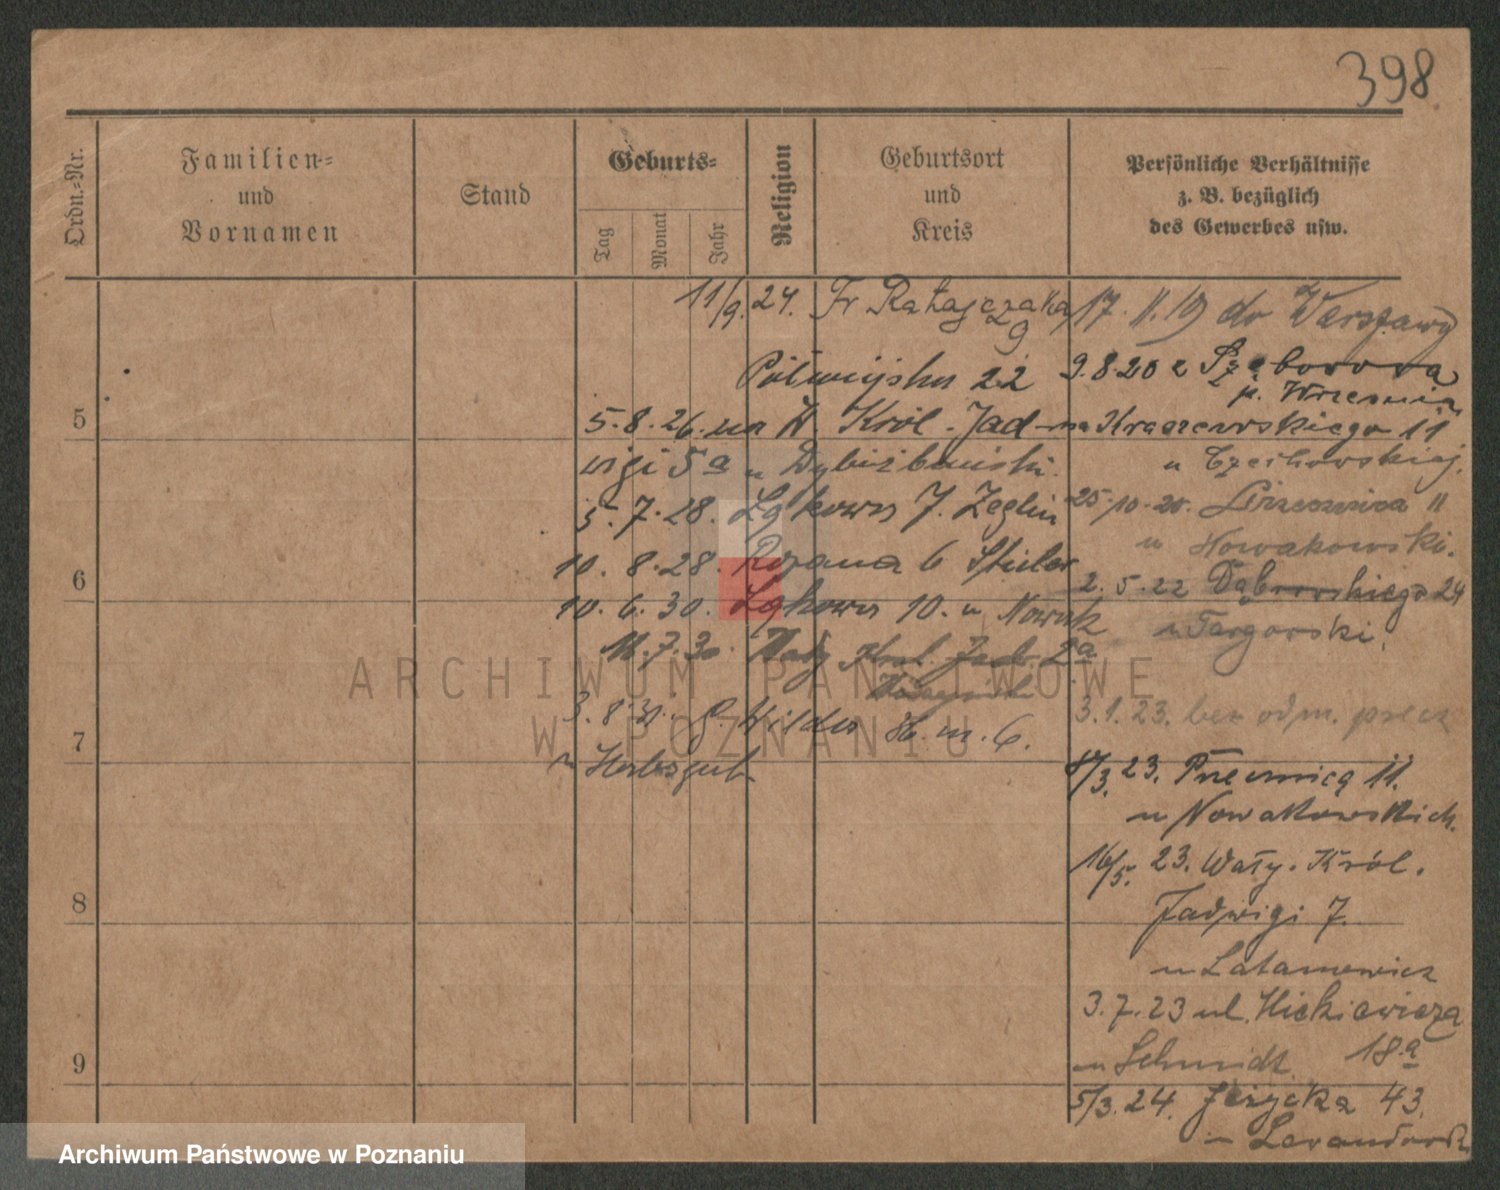 398
Ordn.-Nr.
Familien-
und
Vornamen
Stand
Geburts-
Tag
Monat
Jahr
Religion
Geburtsort
und
Kreis
Persönliche Verhältnisse
z. B. bezüglich
des Gewerbes usw.
5
6
7
8
9
11/9. 24. Fr Ratajczaka
9
Półwiejska 22
5.8.26. na W. Król. Jad-
wigi 5a u
5.7.28. Łąkowa 7.
10. 8.28. 6
10. 6. 30. Łąkowa 10. u Nowak
11.7.30. Wały Król. Jadw. 2a
3.8.31. G. Wilda 6.
17. II. 19 do Warszawy
9.8.20 z
p. Września
na Kraszewskiego 11
u Czechowskiej.
25.10.20. 11
u Nowakowski.
2.5.22 Dąbrowskiego 24
u Targowski.
3.1.23. bez odm. precz
23. 11.
u Nowakowskich.
16/5. 23. Wały. Król.
Jadwigi 7.
u Latanowicz
3.7.23 ul. Mickiewicza
18a
u Schmidt
5/3.24. Jeżycka 43.
ARCHIWUM PAŃSTWOWE
W POZNANIU
Archiwum Państwowe w Poznaniu